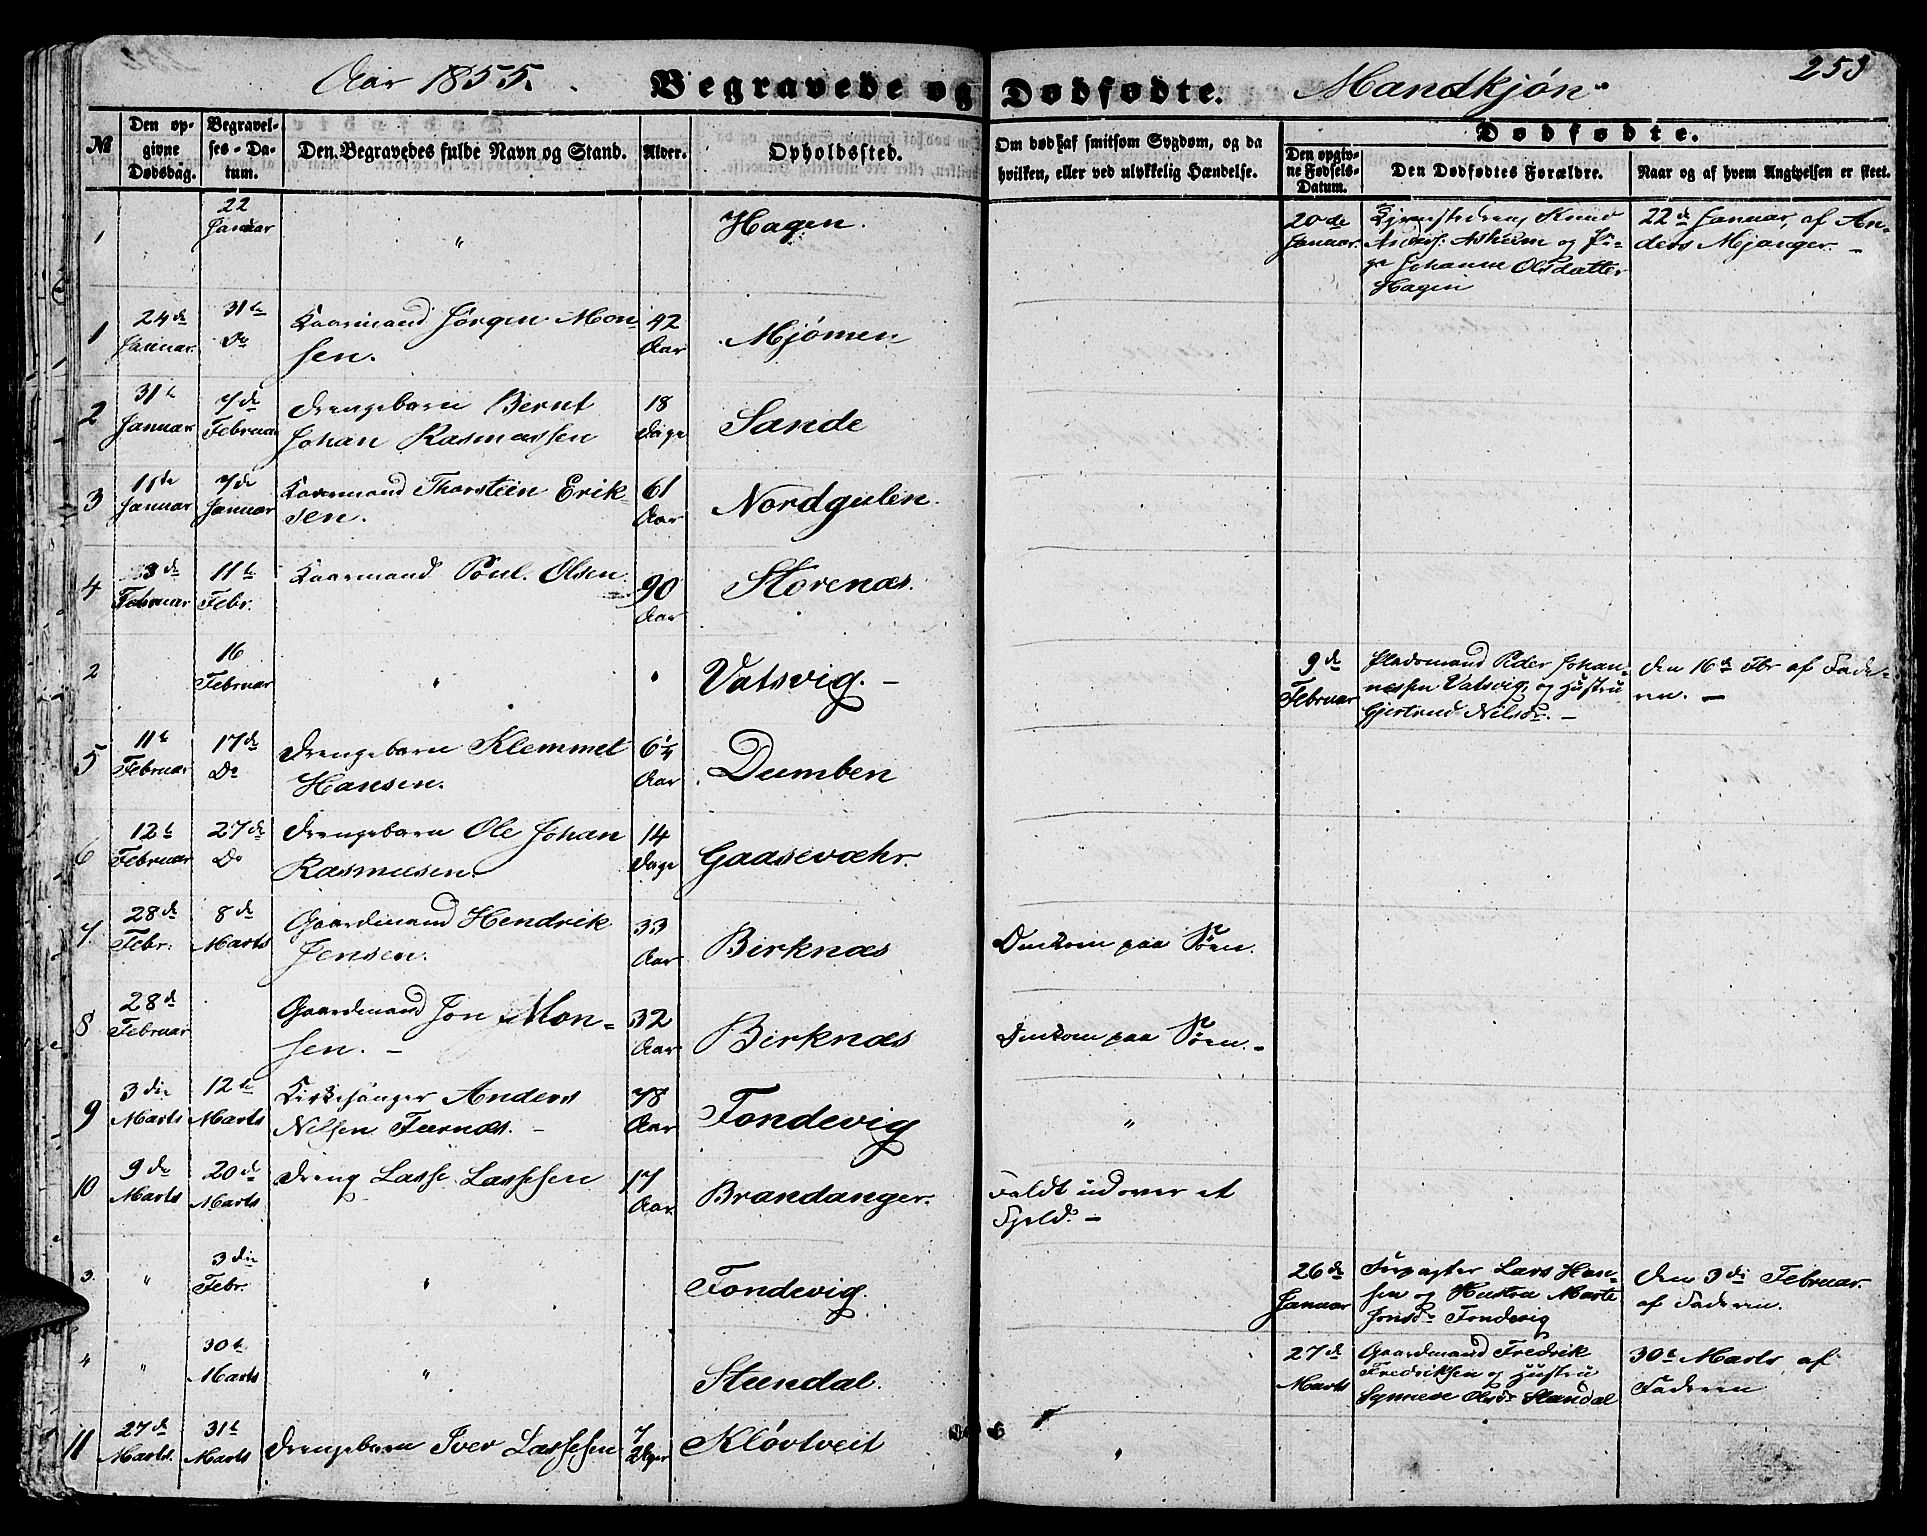 Aar 1855. Begravede og Dødfødte. Mandkjøn 253
№
Den opgivne Dødsdag.
Begravelses-Datum.
Den Begravedes fulde Navn og Stand.
Alder.
Opholdssted.
Om død af smitsom Sygdom, og da hvilken, eller ved ulykkelig Hændelse.
Dødfødte.
Den opgivne Fødsels-Datum.
Den Dødfødtes Forældre.
Naar og af hvem Angivelsen er skeet.
1 22 Januar " Hagen. 20de Januar.
Knud
Anders. Asheim og Pi-
ge Johanne Olsdatter
Hagen
22de Januar af An-
ders Mjanger. –
1 24de Januar. 31te Do Kaarmand Jørgen Mon-
sen. 42 Aar Mjömen
2 31te Januar 7de Februar Drengebarn Bernt
Johan Rasmussen 18 Dage Sande
3 11te Januar 7de Januar Kaarmand Thorstein Erik-
sen. 61 Aar Nordgulen.
4 3de Februar 11te Febr. Kaarmand Poul Olsen. 90 Aar Storenæs.
2 16 Februar " " Vatsvig. – 9de Februar
Pladsmand Peder Johan-
nessen Vatsvig, og Hustru
Gjertrud Nilsdr. –
den 16de Fbr af Fade-
ren. –
5 11te Februar 17de Do Drengebarn Klemmet
Hansen. 6 1/4 Aar Dumben
6 12te Februar 27de Do Drengebarn Ole Johan
Rasmusen. 14 Dage Gaasevæhr.
7. 28de Febr. 8de Marts Gaardmand Hendrik
Jensen. 33 Aar Birknæs Omkom paa Søen.
8 28de Februar Gaardmand Jon Mon-
sen. – 32 Aar Birknæs Omkom paa Søen. –
9 3die Marts 12te Marts Kirkesanger Anders
Nilsen Furnæs. – 78 Aar Fondevig "
10 9de Marts 20de Marts Dreng Lasse Lassesen 17 Aar Brandanger. Faldt udover et
Fjeld. –
3. " 3die Febr. " Fondevig. 26de Januar
Lars Han-
sen og Hustru Marte
Jonsdr Fondevig
den 3die Februar.
af Faderen.
4 " 30te Marts " Steendal. 27de Marts
Gaardmand Fredrik
Fredriksen og Hustru
Synneve Olsdr Standal
30te Marts af
Faderen
11 27de Marts. 31te Marts Drengebarn Iver Lassesen 7 Uger Kløvtveit "